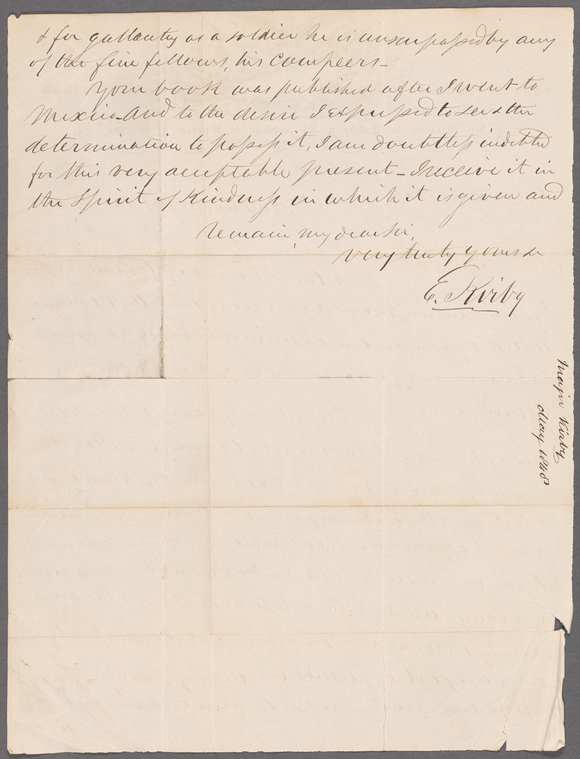 & for gallantry as a soldier he is unsurpassed by any
of the fine fellows, his compeers –
Your book was published after I went to
Mexico – And to the desire I expressed to see & the
determination to possess it, I am doubtless indebted
for this very acceptable present – I receive it in
the Spirit of Kindness in which it is given and
remain, my dear Sir,
very truly yours &c
E. Kirby
Major Kirby
May 1848